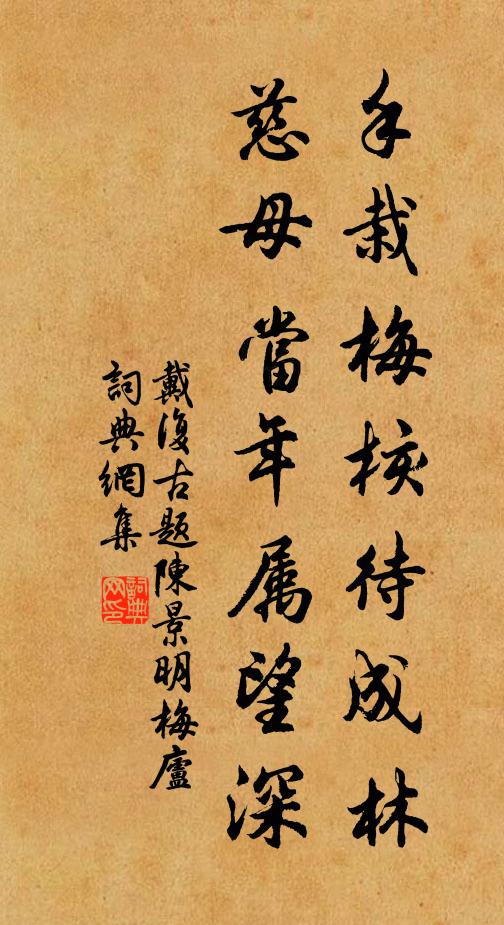 手栽梅核待成林
慈母當年属望深
戴復古题陳景明梅廬
詞典網集
詞典
网印